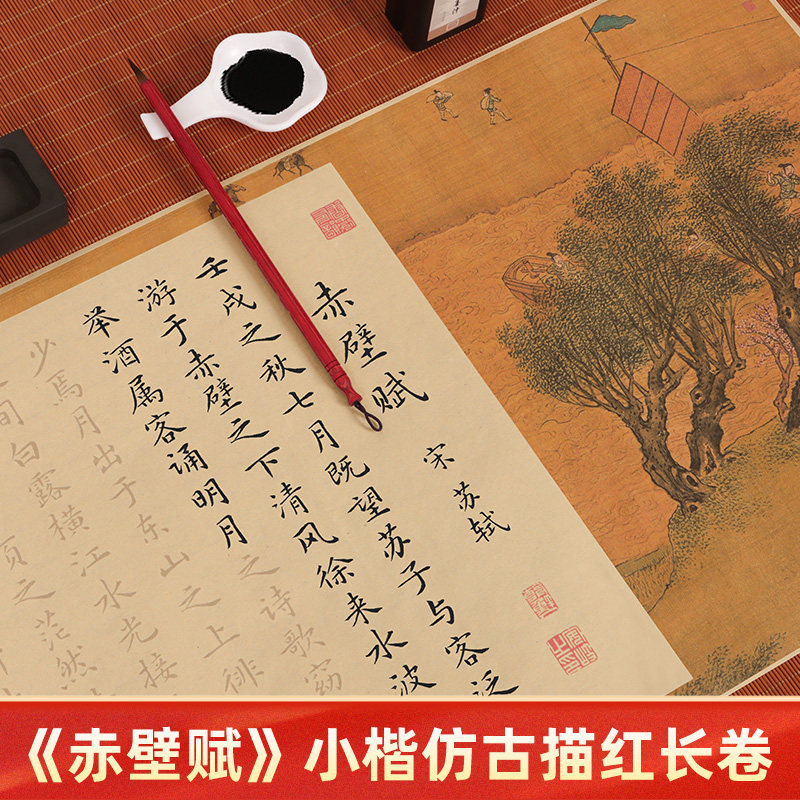 赤壁赋
宋 苏轼
壬戌之秋七月既望苏子与客泛
游于赤壁之下清风徐来水波
举酒属客诵明月之诗歌窈
少焉月出于东山之上徘
间白露横江水光接
顷之茫然
《赤壁赋》小楷仿古描红长卷